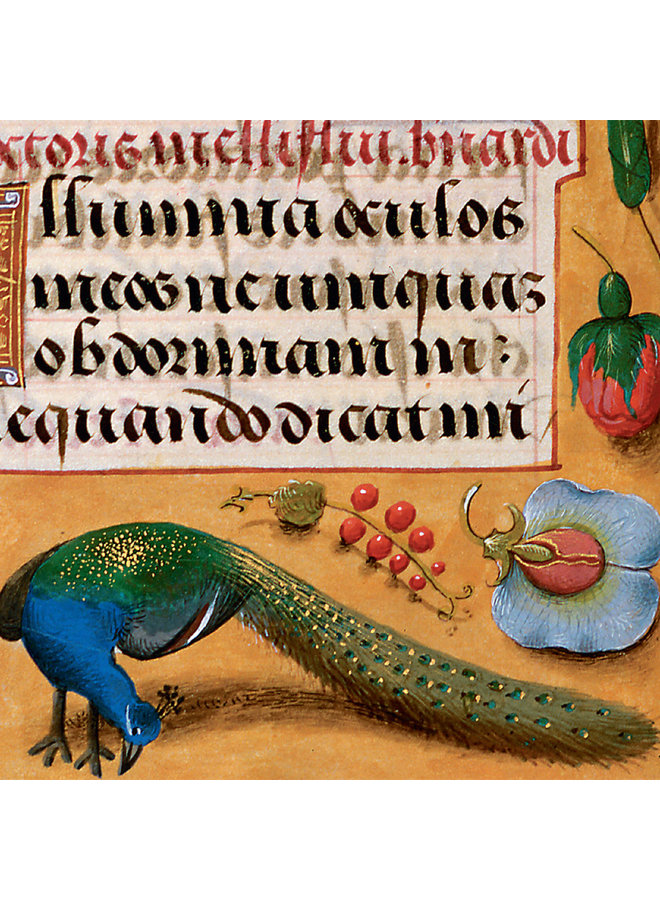 ctoris melliflui. bnardi
Illumina oculos
meos ne umquaz
obdormiam in:
equando dicat ini